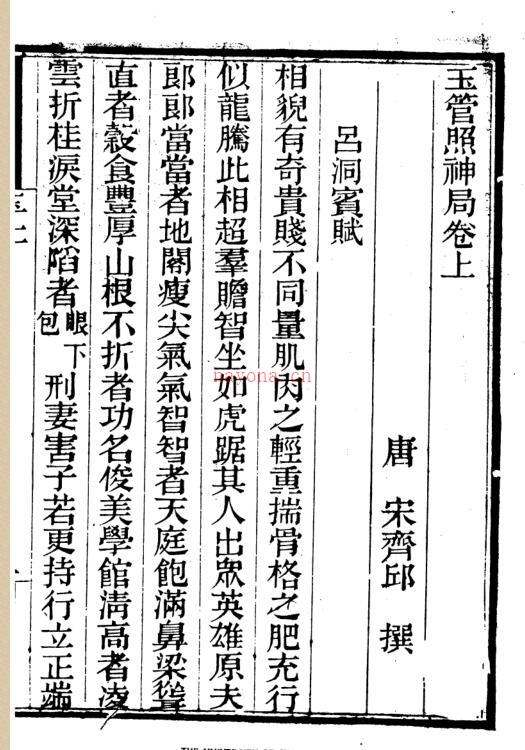 玉管照神局卷上
唐 宋齊邱 撰
呂洞賓賦
相貌有奇貴賤不同量肌肉之輕重揣骨格之肥充行
似龍騰此相超羣贍智坐如虎踞其人出眾英雄原夫
郎郎當當者地閣瘦尖氣氣智智者天庭飽滿鼻梁聳
直者穀食豐厚山根不折者功名俊美學館清高者凌
雲折桂淚堂深陷者眼下包刑妻害子若更持行立正端
nayona.cn